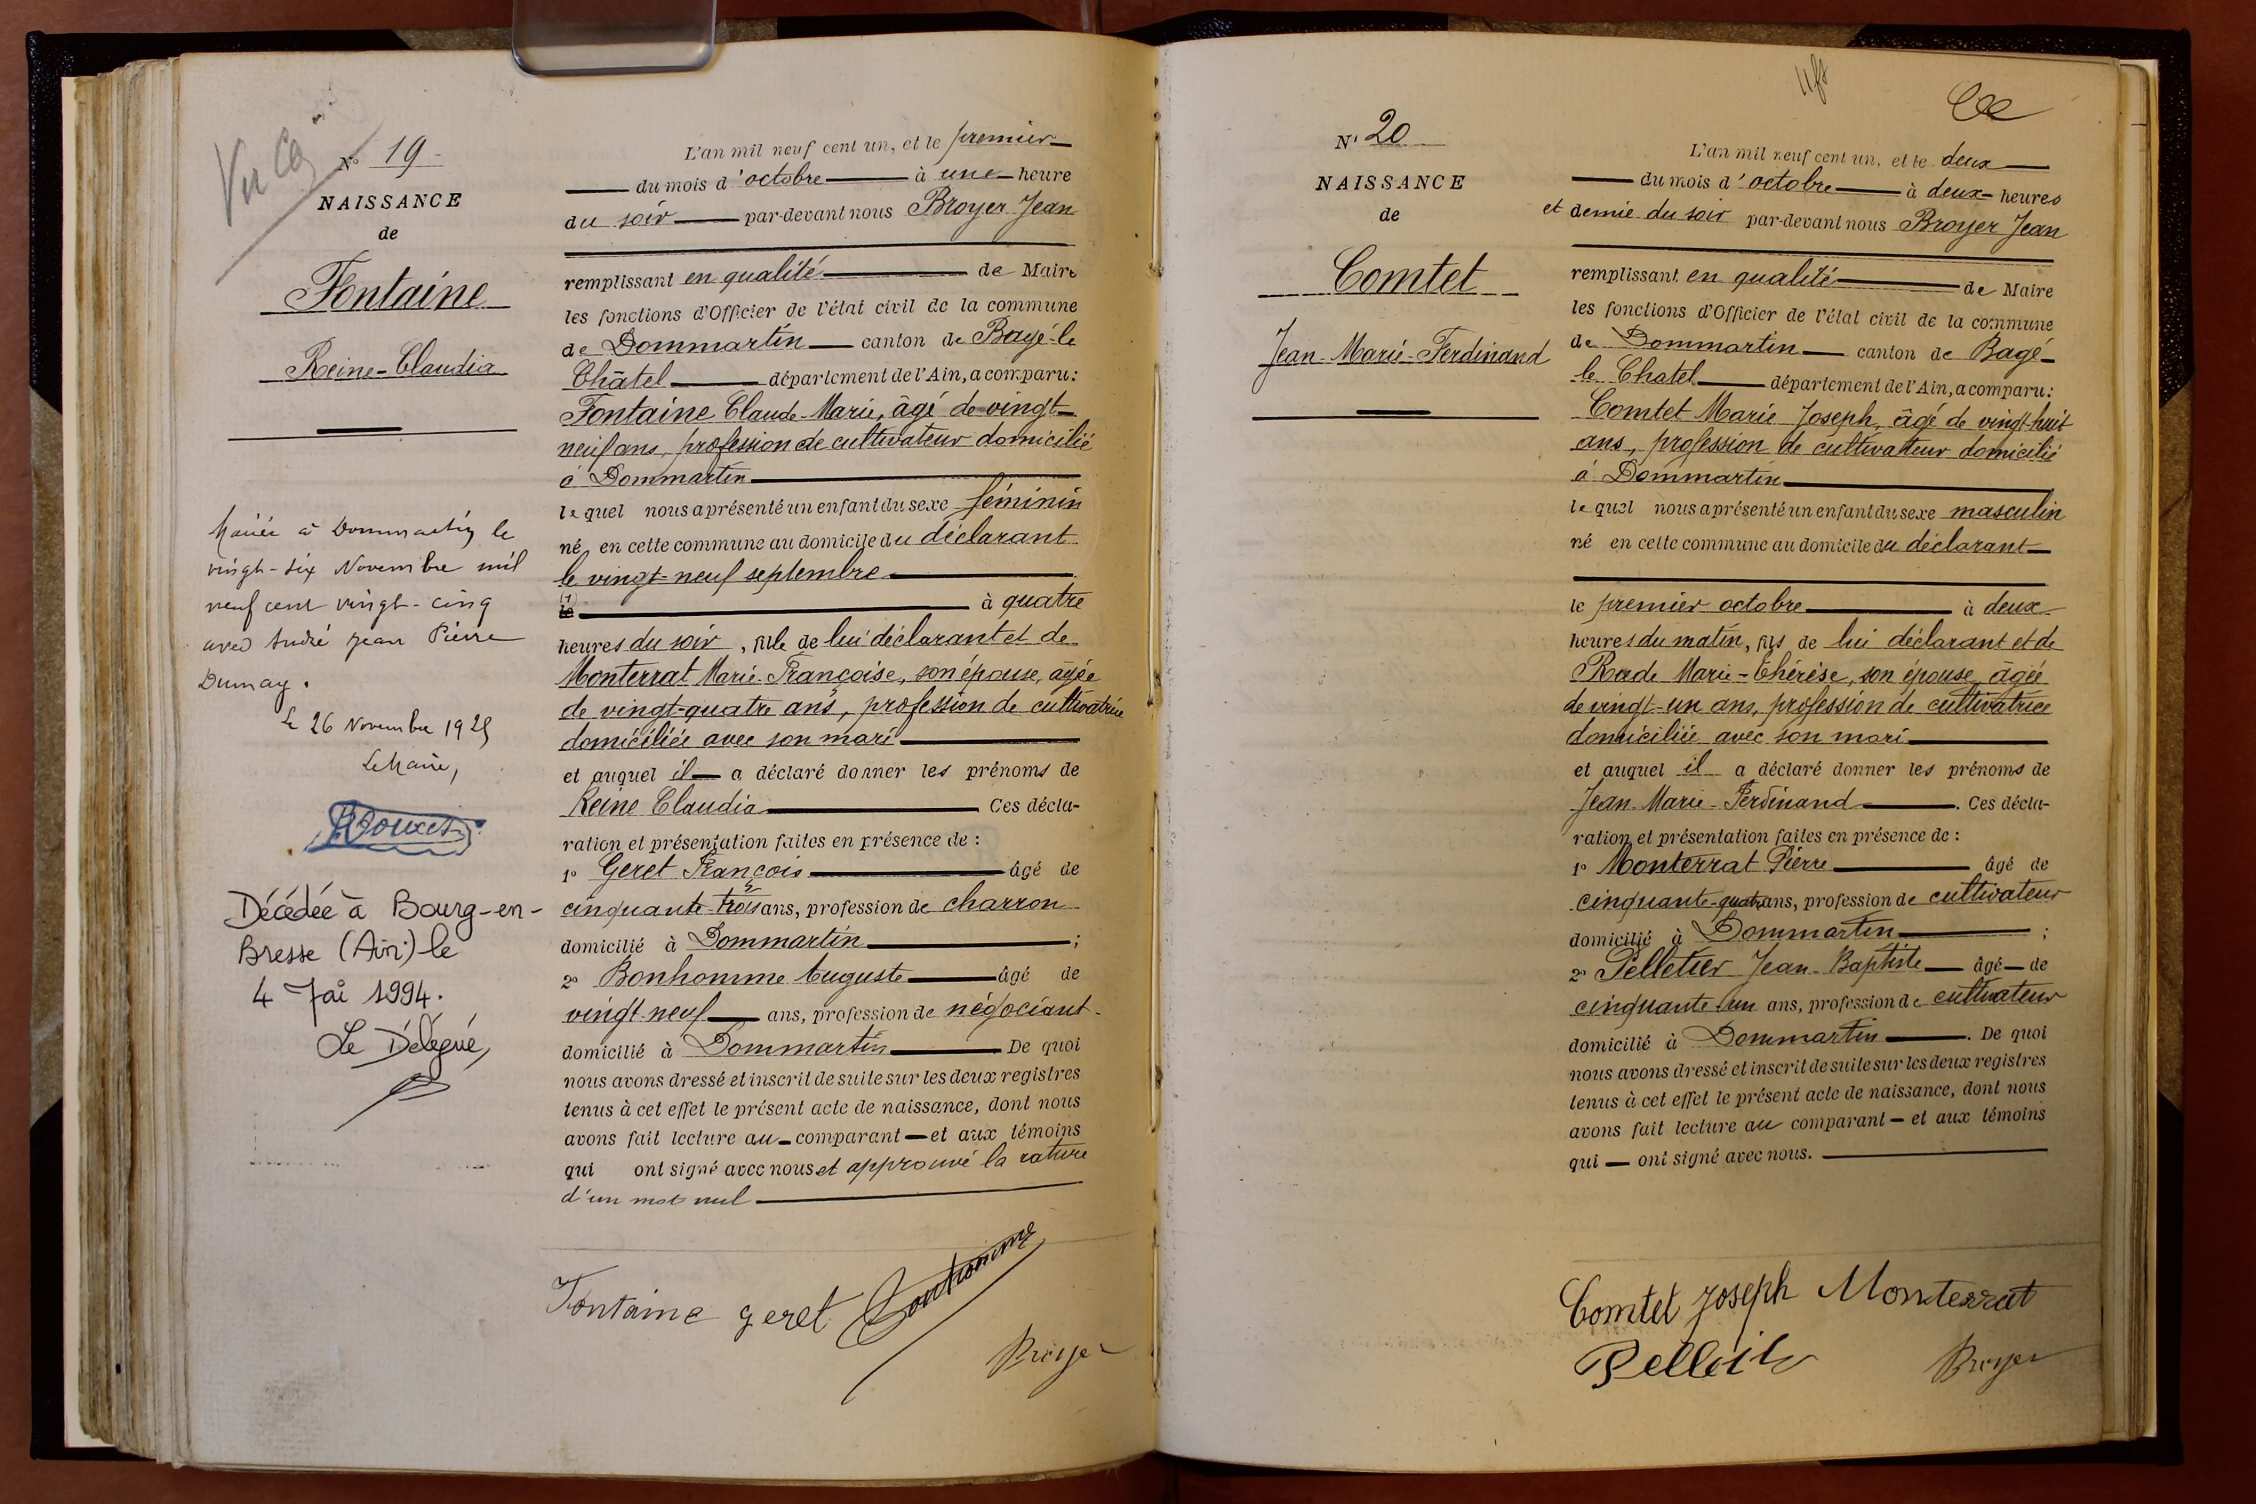 Vu
N° 19
NAISSANCE
de
Fontaine
Reine-Claudia
Mariée à Dommartin le
vingt-six Novembre mil
neuf cent vingt-cinq
avec André Jean Pierre
Dumay.
Le 26 Novembre 1925
Le Maire,
Décédée à Bourg-en-
Bresse (Ain) le
4 Mai 1994.
Le Délégué,
L'an mil neuf cent un, et le premier
du mois d'octobre à une heure
du soir par-devant nous Broyer Jean
remplissant en qualité de Maire
les fonctions d'Officier de l'état civil de la commune
de Dommartin canton de Bagé-le
Châtel département de l'Ain, a comparu:
Fontaine Claude-Marie, âgé de vingt-
neuf ans, profession de cultivateur domicilié
à Dommartin
lequel nous a présenté un enfant du sexe féminin
né en cette commune au domicile du déclarant
le vingt-neuf septembre
(1) le à quatre
heures du soir, fille de lui déclarant et de
Monterrat Marie-Françoise, son épouse, âgée
de vingt-quatre ans, profession de cultivatrice
domiciliée avec son mari
et auquel il a déclaré donner les prénoms de
Reine Claudia Ces décla-
ration et présentation faites en présence de :
1° Geret François âgé de
cinquante-trois ans, profession de charron
domicilié à Dommartin ;
2° Bonhomme Auguste âgé de
vingt-neuf ans, profession de négociant
domicilié à Dommartin De quoi
nous avons dressé et inscrit de suite sur les deux registres
tenus à cet effet le présent acte de naissance, dont nous
avons fait lecture au comparant et aux témoins
qui ont signé avec nous et approuvé la rature
d'un mot nul
Fontaine Geret Bonhomme
Broyer
N° 20
NAISSANCE
de
Comtet
Jean-Marie-Ferdinand
L'an mil neuf cent un, et le deux
du mois d'octobre à deux heures
et demie du soir par-devant nous Broyer Jean
remplissant en qualité de Maire
les fonctions d'Officier de l'état civil de la commune
de Dommartin canton de Bagé-
le Chatel département de l'Ain, a comparu:
Comtet Marie Joseph, âgé de vingt-huit
ans, profession de cultivateur domicilié
à Dommartin
lequel nous a présenté un enfant du sexe masculin
né en cette commune au domicile du déclarant
le premier octobre à deux
heures du matin, fils de lui déclarant et de
Rude Marie-Thérèse, son épouse, âgée
de vingt-un ans, profession de cultivatrice
domiciliée avec son mari
et auquel il a déclaré donner les prénoms de
Jean-Marie-Ferdinand. Ces décla-
ration et présentation faites en présence de :
1° Monterrat Pierre âgé de
cinquante-quatre ans, profession de cultivateur
domicilié à Dommartin ;
2° Pelletier Jean-Baptiste âgé de
cinquante-un ans, profession de cultivateur
domicilié à Dommartin. De quoi
nous avons dressé et inscrit de suite sur les deux registres
tenus à cet effet le présent acte de naissance, dont nous
avons fait lecture au comparant et aux témoins
qui ont signé avec nous.
Comtet Joseph Monterrat
Broyer